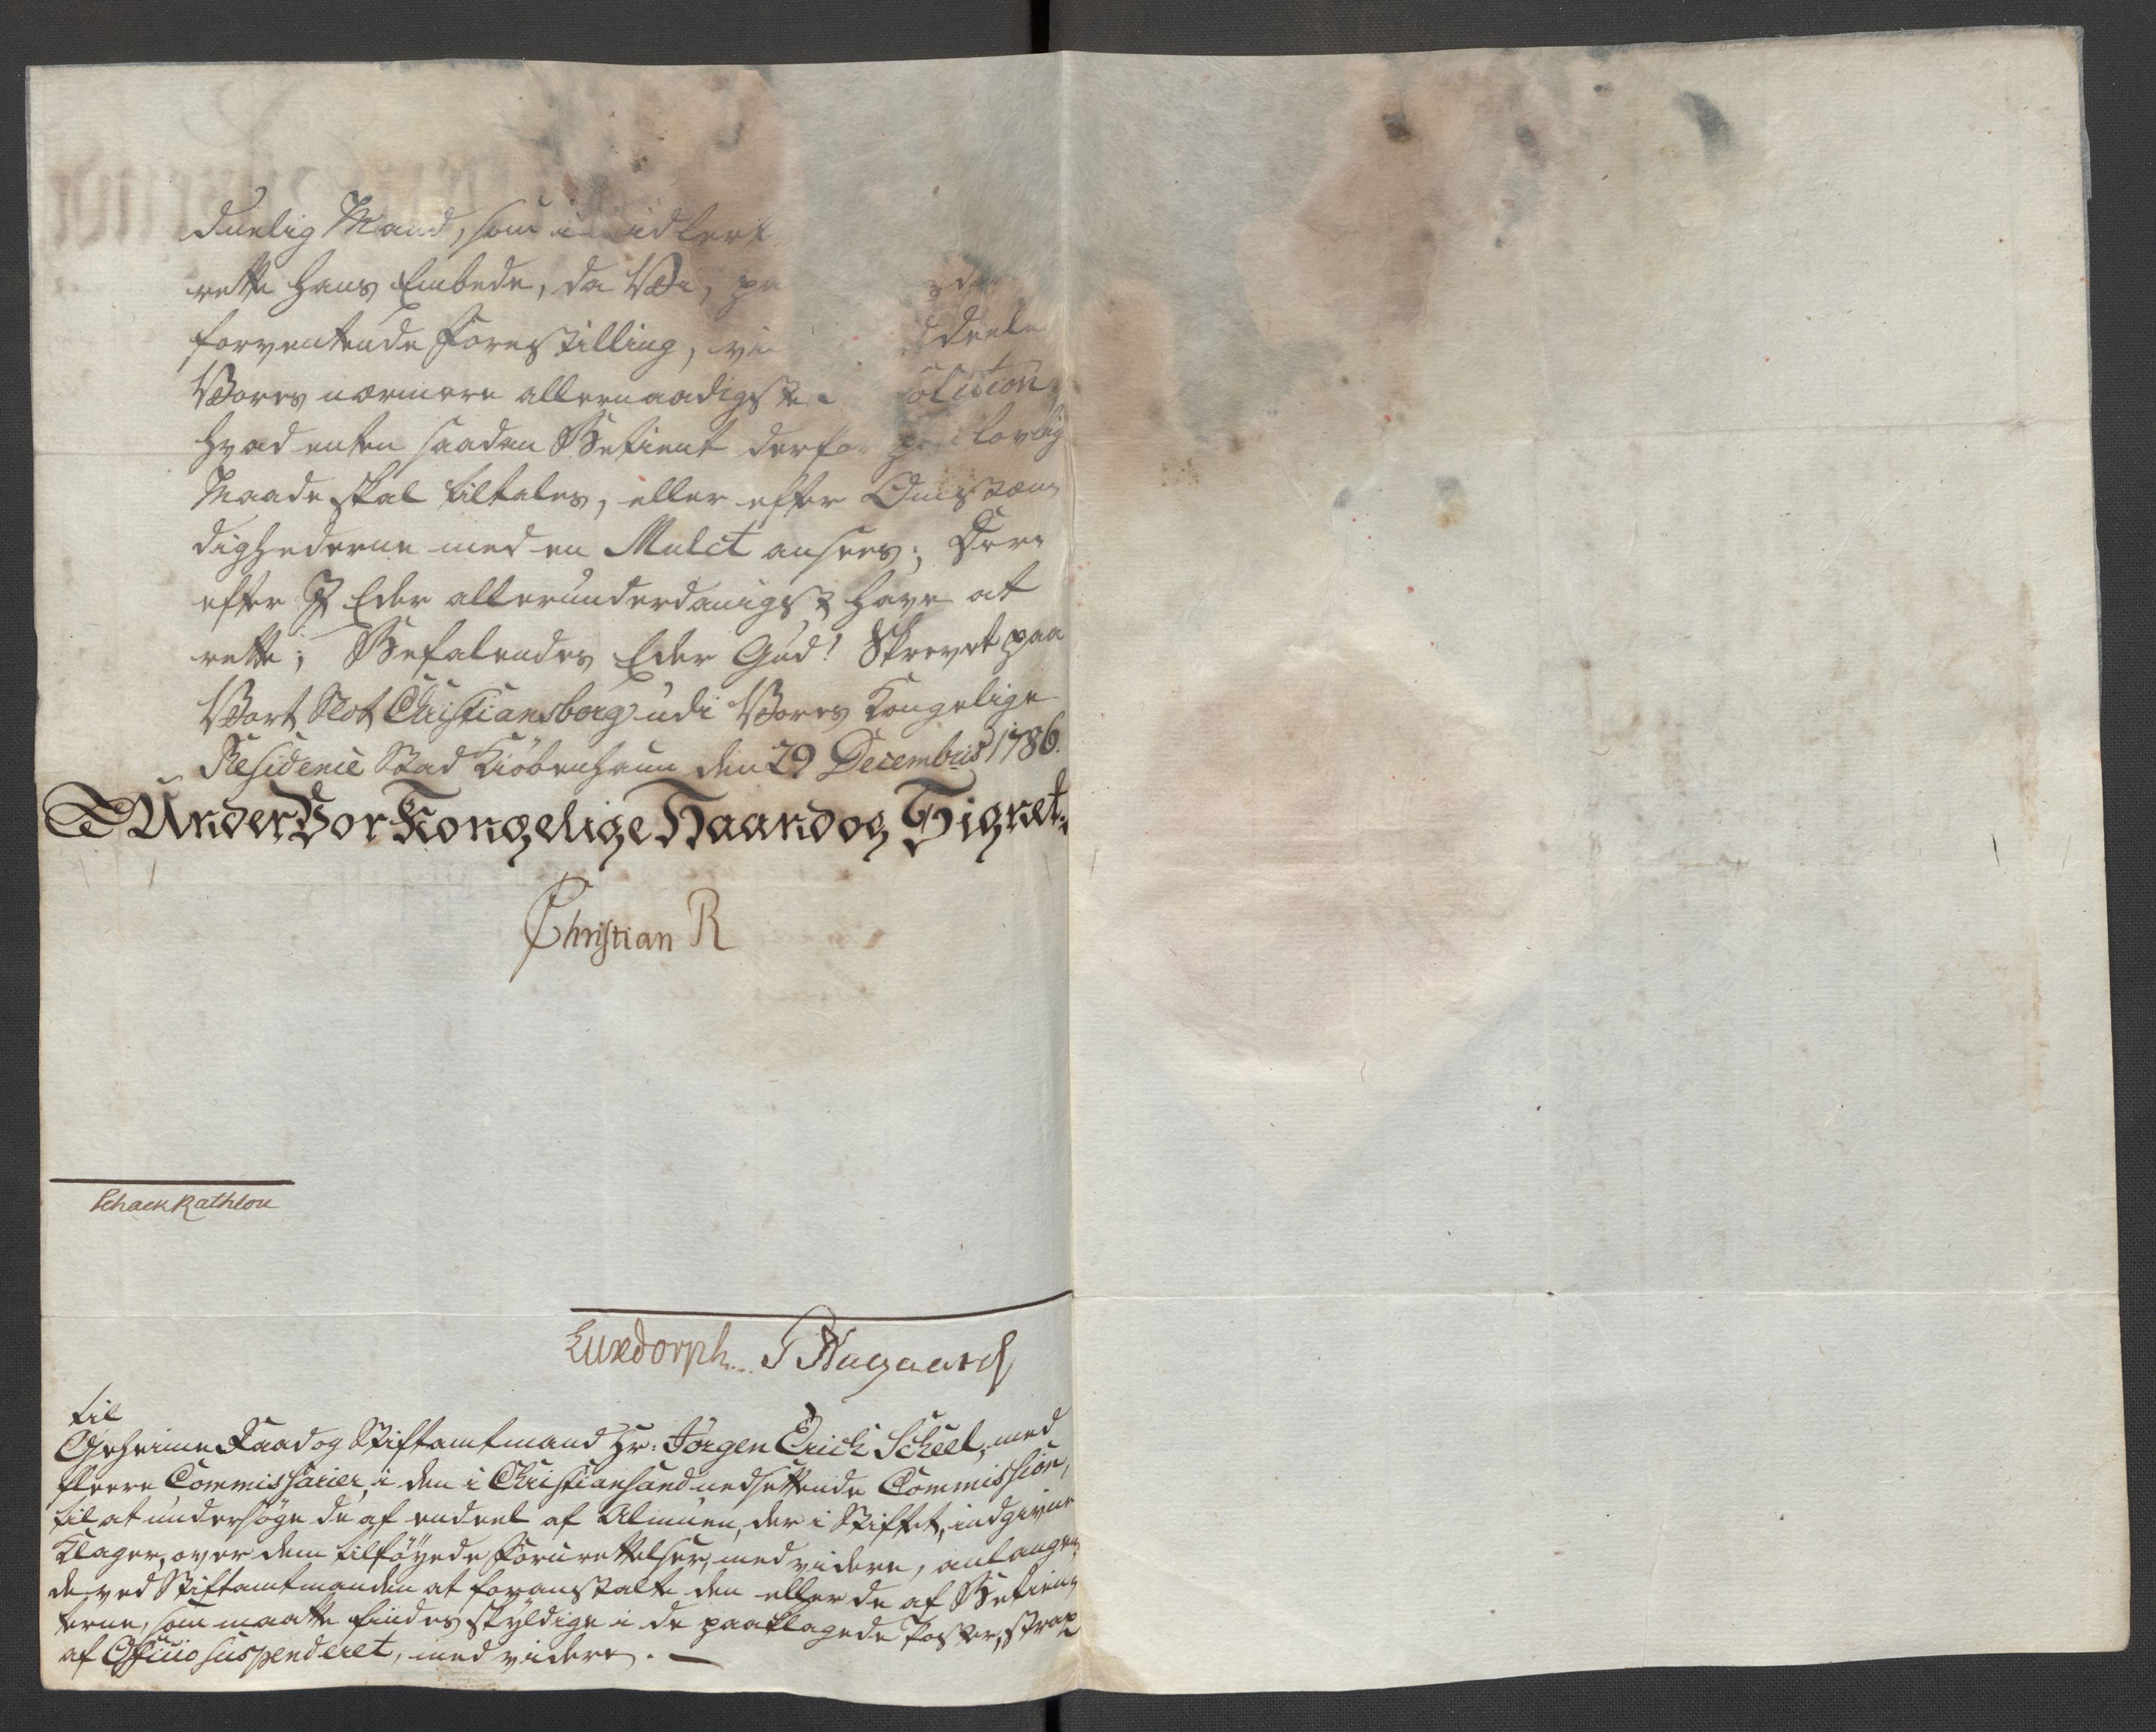 duelig Mand, som imidlert
rette hans Embede, da Vi, pa
forventende Forestilling, vi deele
Vores nærmere allernaadigste olution
hvad enten saadan Betient derfor paa lovlig
Maade skal tiltales, eller efter Omstæn
dighederne med en Mulct ansees; Der
efter I Eder allerunderdanigst have at
rette; Befalendes Eder Gud! Skrevet paa
Vort Slot Christiansborg udi Vores Kongelige
Residence Stad Kiøbenhavn den 29 Decembris 1786.
Under Vor Kongelige Haand og Signet.
Christian R
Schack Rathlou
Luxdorph. Aagaard
til
Geheime Raad og Stiftamtmand Hr: Jørgen Erich Scheel, med
fleere Commissarier, i den i Christiansand nedsættende Commission,
til at undersøge de af endeel af Almuen, der i Stiftet, indgivne
Klager, over dem tilføyede Forurettelser, med videre, anlangen
de ved Stiftamtmanden at foranstalte den eller de af Betien
terne, som maatte findes skyldige i de paaklagede Poster, strax
af Officio suspenderet, med videre. —